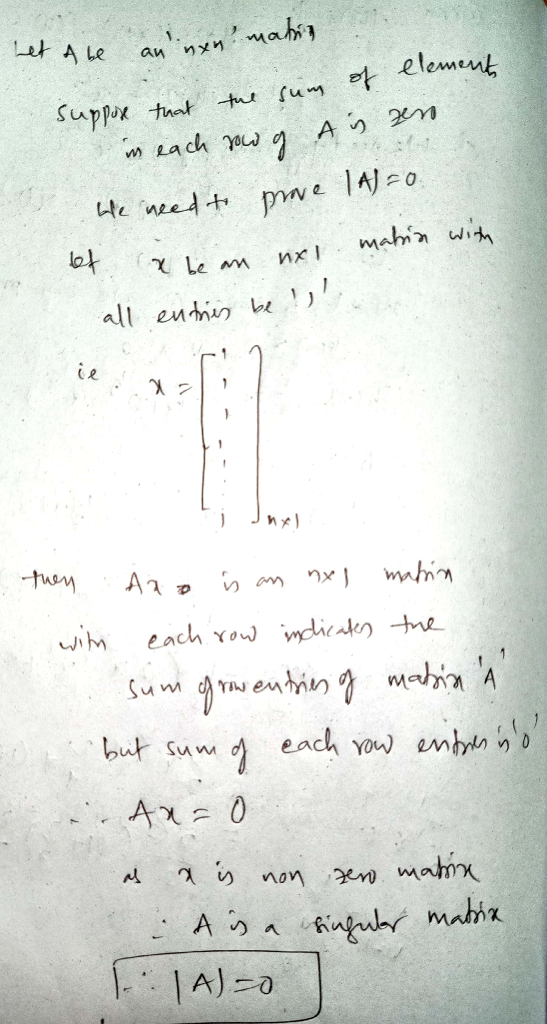 Let A be an 'nxn' matrix
Suppose that the sum of elements
in each row of A is zero
We need to prove |A|=0
let x be an nx1 matrix with
all entries be '1'
ie x = [1 1 1 1 : : 1] nx1
then Ax is an nx1 matrix
with each row indicates the
sum of row entries of matrix 'A'
but sum of each row entries is '0'
∴ Ax = 0
as x is non zero matrix
∴ A is a singular matrix
∴ |A|=0